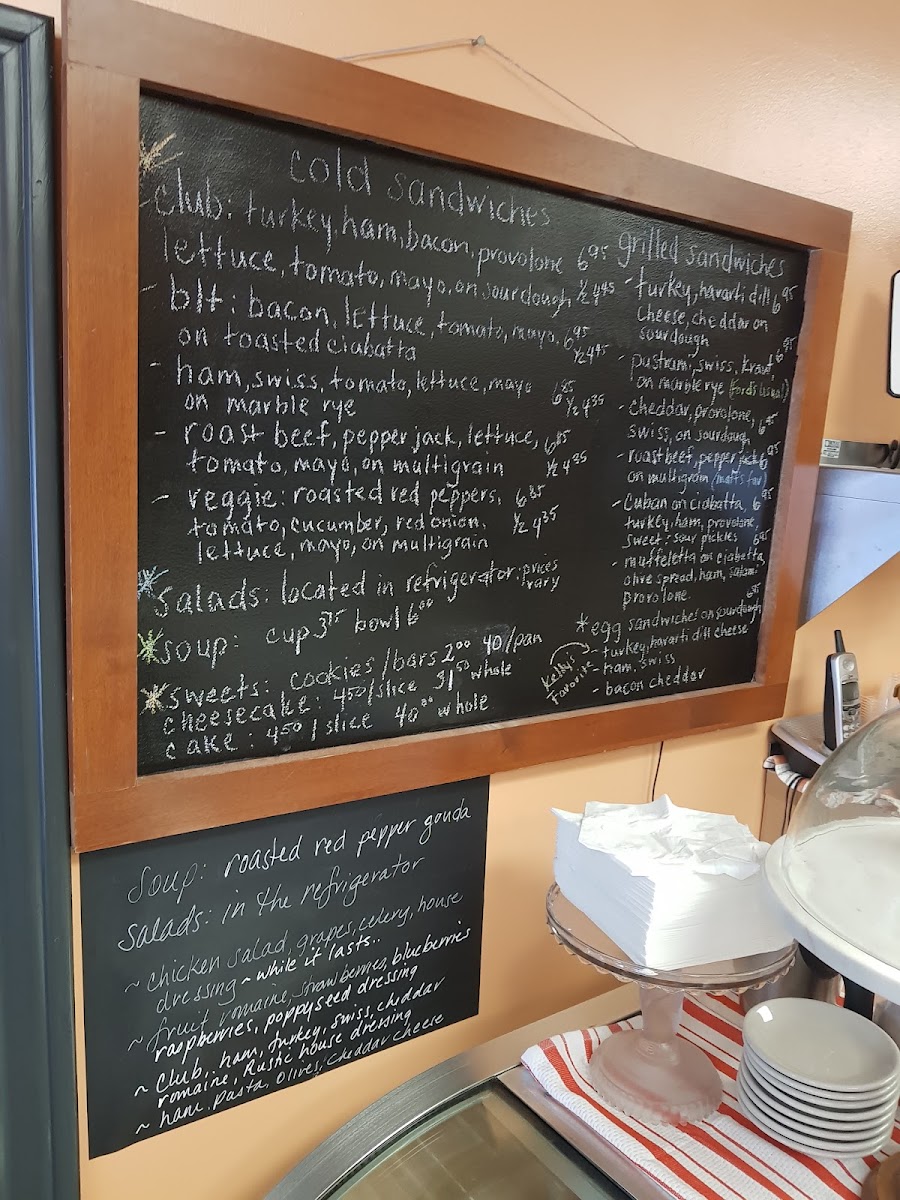 cold sandwiches
- club: turkey, ham, bacon, provolone 6.95
lettuce, tomato, mayo, on sourdough 1/2 4.45
- blt: bacon, lettuce, tomato, mayo 6.95
on toasted ciabatta 1/2 4.45
- ham, swiss, tomato, lettuce, mayo 6.85
on marble rye 1/2 4.35
- roast beef, pepper jack, lettuce, 6.85
tomato, mayo, on multigrain 1/2 4.35
- veggie: roasted red peppers, 6.85
tomato, cucumber, red onion, 1/2 4.35
lettuce, mayo, on multigrain
salads: located in refrigerator: prices
vary
soup: cup 3.75 bowl 6.00
*sweets: cookies/bars 2.00 40/pan
cheesecake: 4.50/slice 31.50 whole
cake: 4.50/slice 40.00 whole
grilled sandwiches
- turkey, havarti dill 6.95
cheese, cheddar on
sourdough
- pastrami, swiss, kraut 6.95
on marble rye (Ford's Usual)
- cheddar, provolone, 6.95
swiss, on sourdough
- roast beef, pepper jack 6.95
on multigrain (matt's fav)
- Cuban on ciabatta, 6.95
turkey, ham, provolone,
sweet & sour pickles
- muffeletta on ciabatta, 6.95
olive spread, ham, salami
provolone
*egg sandwiches on sourdough 6.95
- turkey, havarti dill cheese
- ham, swiss
- bacon cheddar
Kelby's
Favorite
Soup: roasted red pepper gouda
Salads: in the refrigerator
~ chicken salad, grapes, celery, house
dressing ~ while it lasts..
~ fruit romaine, strawberries, blueberries
raspberries, poppyseed dressing
~ Club.. ham, turkey, swiss, cheddar
romaine, Rustic house dressing
~ ham. pasta, olives, cheddar cheese